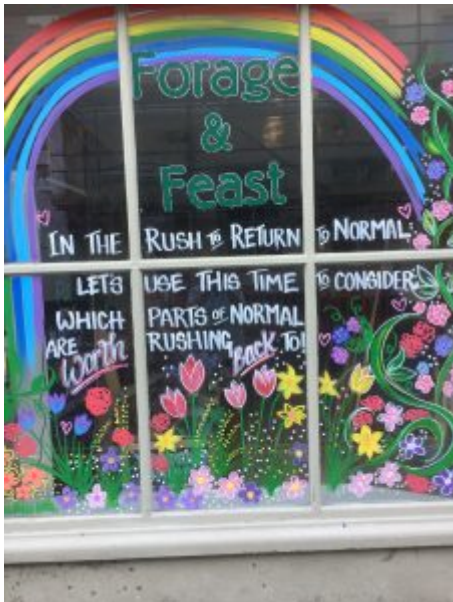 Forage
&
Feast
IN THE RUSH TO RETURN TO NORMAL
LET'S USE THIS TIME TO CONSIDER
WHICH PARTS OF NORMAL
ARE Worth RUSHING BACK TO!